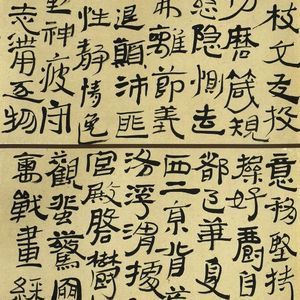 枝交友投
切磨箴規
慈隱惻造
弗離節義
退顛沛匪
性靜情逸
神疲守
志滿逐物
意移堅持
操好爵自
都邑華夏
西二京背
洛浮渭據
宮殿盤鬱
觀飛驚圖
禽獸畫綵